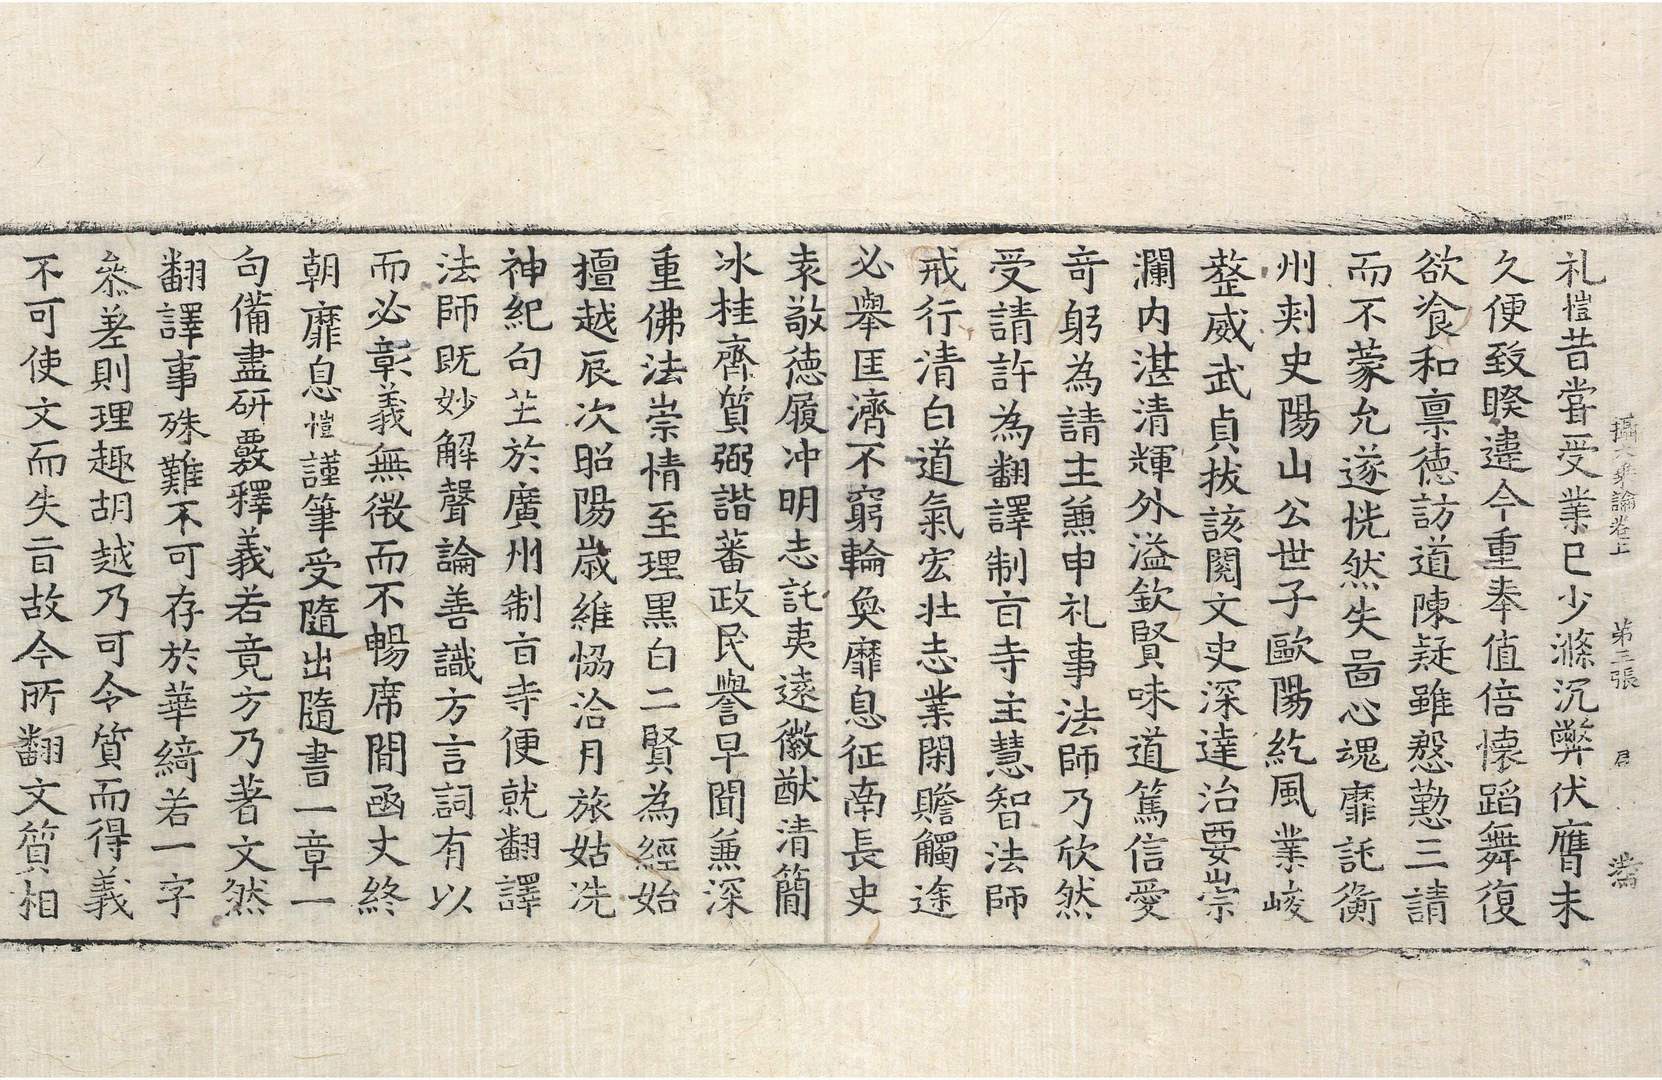 攝大乘論卷上 第三張
礼愷昔嘗受業已少滌沉弊伏膺未
久便致睽違今重奉值倍懷蹈舞復
欲飡和禀德訪道陳疑雖慇懃三請
而不蒙允遂恍然失啚心魂靡託衡
州刾史陽山公世子歐陽紇風業峻
整威武貞拔該閱文史深達治要崇
瀾内湛清輝外溢欽賢味道篤信愛
竒躬為請主兼申礼事法師乃欣然
受請許為翻譯制㫖寺主慧智法師
戒行清白道氣宏壯志業閑贍觸途
必舉匡濟不窮輪奐靡息征南長史
袁敬德履冲明志託夷遠徽猷清簡
冰桂齊質弼諧蕃政民譽早聞兼深
重佛法崇情至理黒白二賢為經始
擅越辰次昭陽歳維恊洽月旅姑洗
神紀句芒於廣州制㫖寺便就翻譯
法師旣妙解聲論善識方言詞有以
而必彰義無微而不暢席間函丈終
朝靡息愷謹筆受隨出隨書一章一
句備盡研覈釋義若竟方乃著文然
翻譯事殊難不可存於華綺若一字
叅差則理趣胡越乃可令質而得義
不可使文而失㫖故今所翻文質相